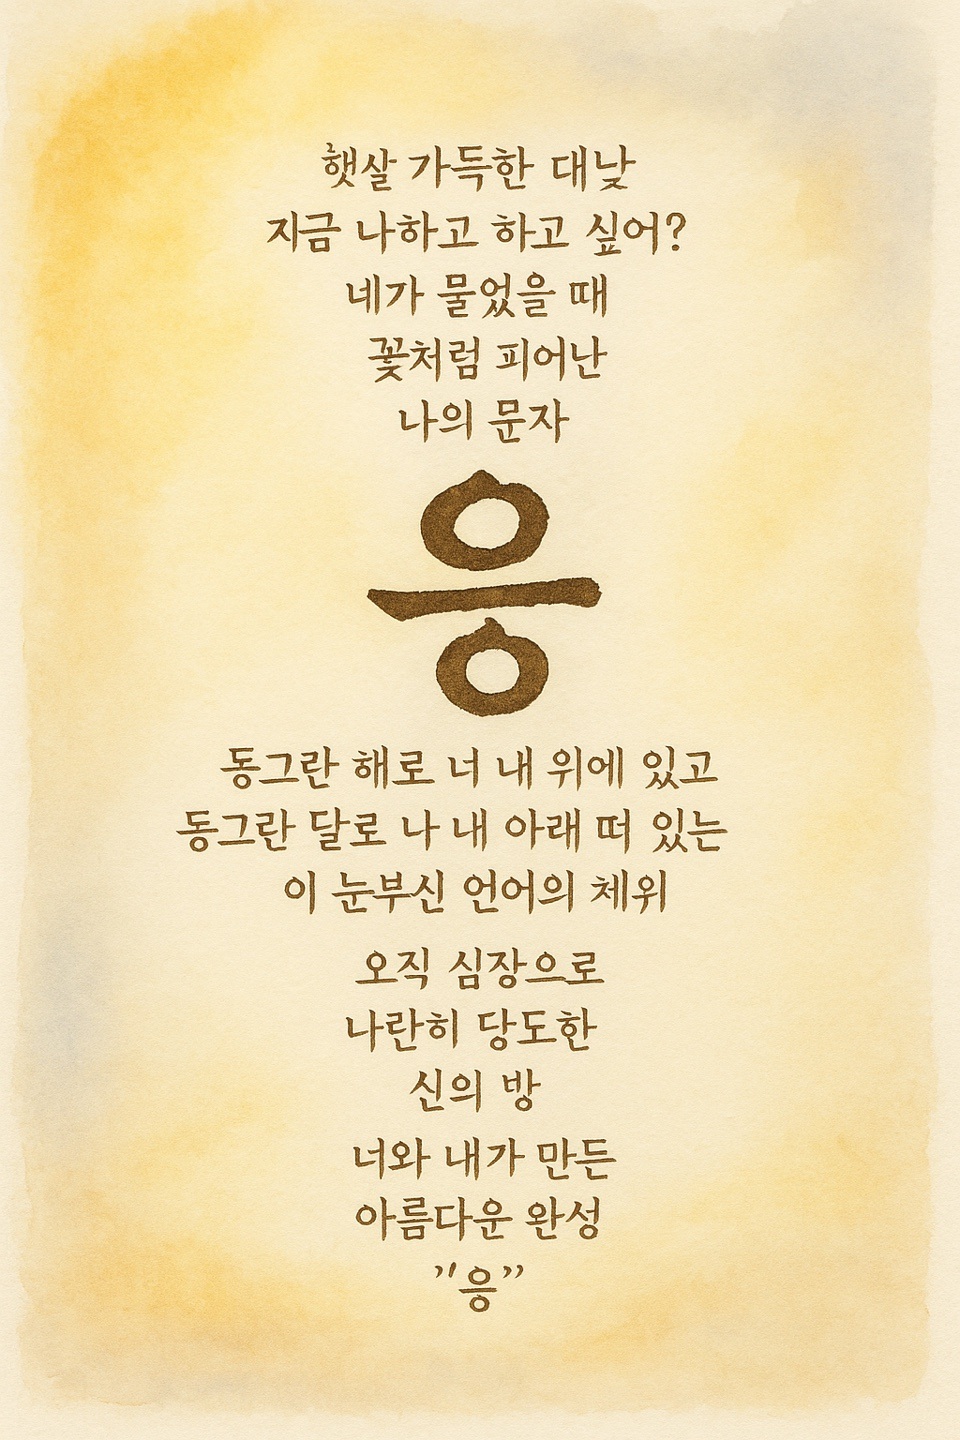 햇살 가득한 대낮
지금 나하고 하고 싶어?
네가 물었을 때
꽃처럼 피어난
나의 문자
응
동그란 해로 너 내 위에 있고
동그란 달로 나 내 아래 떠 있는
이 눈부신 언어의 체위
오직 심장으로
나란히 당도한
신의 방
너와 내가 만든
아름다운 완성
"응"